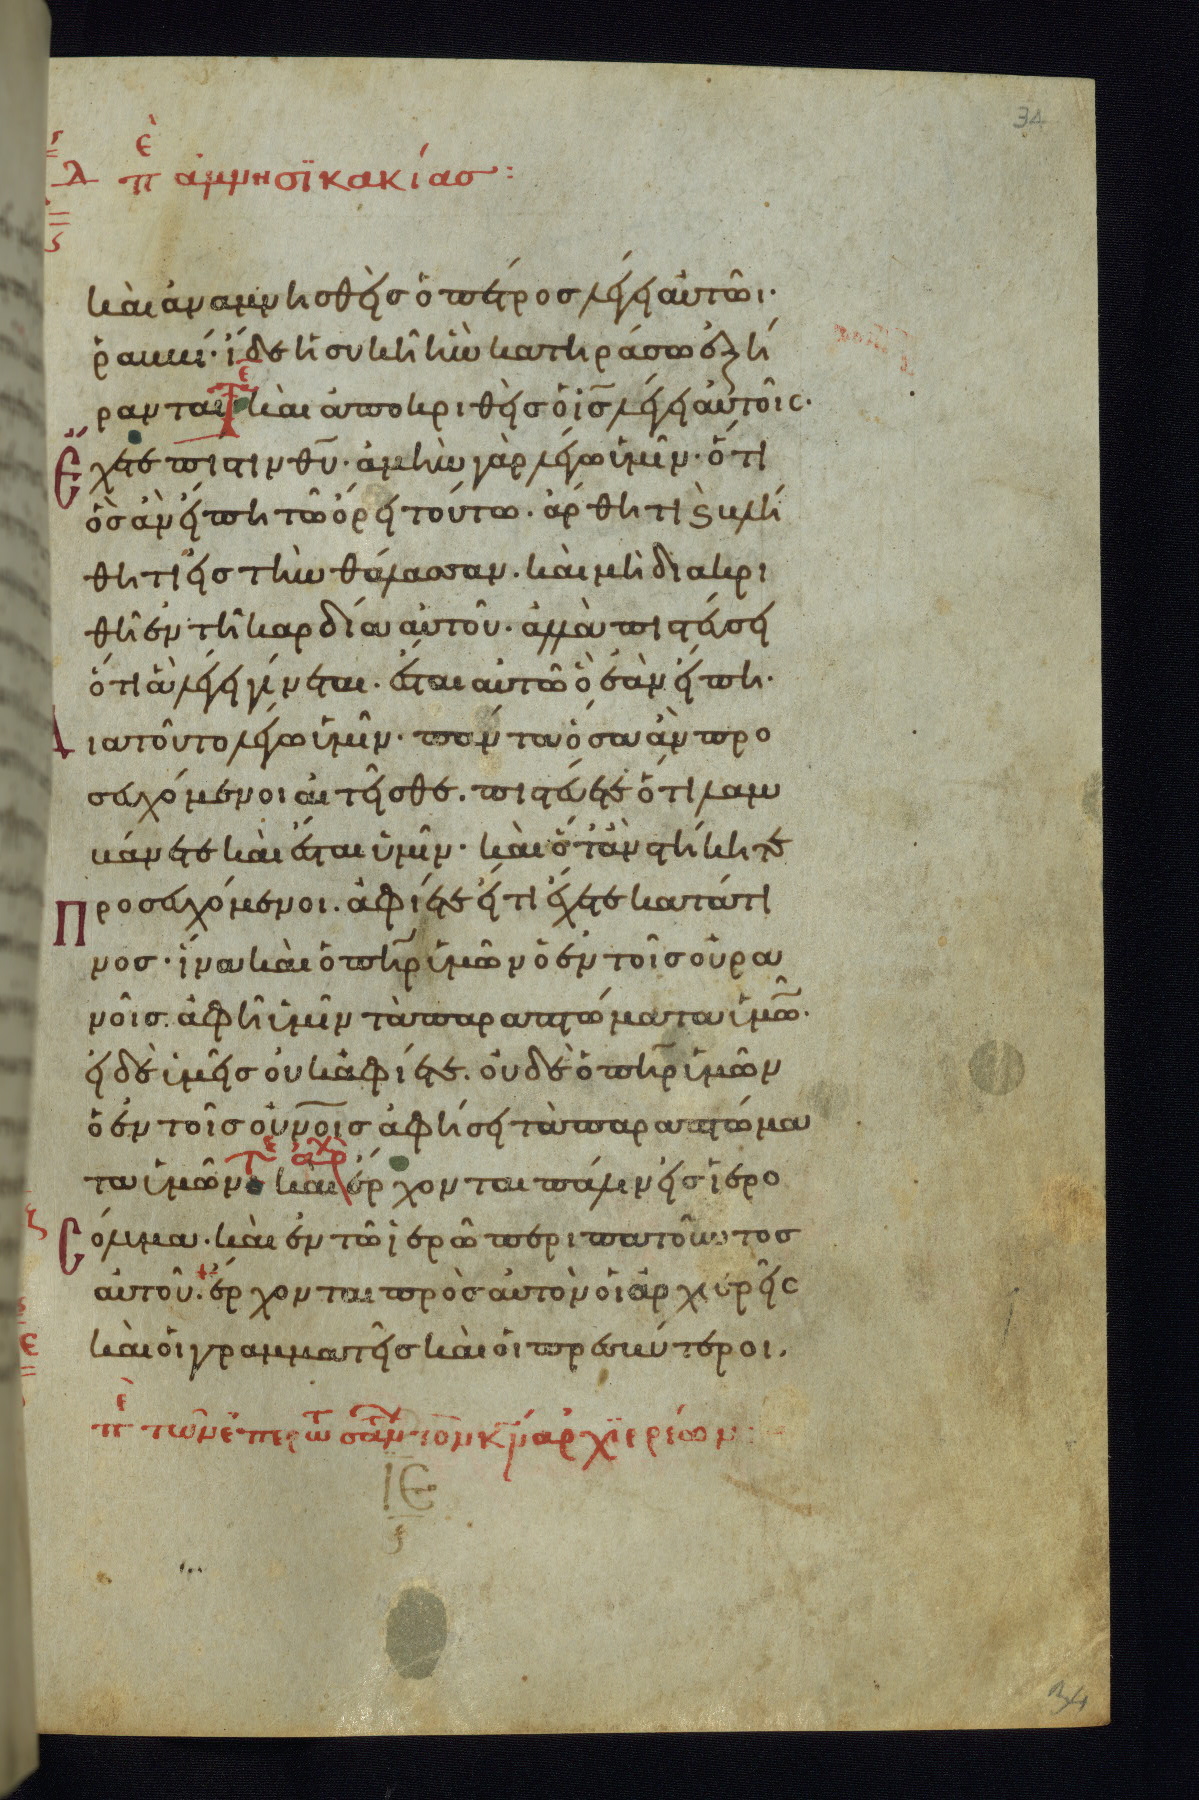 34
λ πε ἀμνησϊκακίασ:
καὶ ἀναμνησθεὶσ ὁ πέτροσ λέγει αὐτῶι·
ῥαββί· ἴδε ἡ συκῆ ἣν κατηράσω ἐξή
ρανται· καὶ ἀποκριθεὶσ ὁ ισ λέγει αὐτοῖς·
Ἔχετε πίστιν θυ· ἀμὴν γὰρ λέγω ὑμῖν· ὅτι
ὃσ ἂν εἴπη τῶ ὄρει τούτω· ἄρθητι καὶ βλή
θητι εἰσ τὴν θάλασσαν· καὶ μὴ διακρι
θῆ ἐν τῆ καρδία αὐτοῦ· ἀλλὰ πιστεύσει
ὅτι ἃ λέγει γίνεται· ἔσται αὐτῶ ὃ ἐὰν εἴπη·
Διατοῦτο λέγω ὑμῖν· πάντα ὅσα ἂν προ
σευχόμενοι αἰτεῖσθε· πιστεύετε ὅτι λαμ
βάνετε καὶ ἔσται ὑμῖν· καὶ ὅτἂν στήκητε
Προσευχόμενοι· ἀφίετε εἴ τι ἔχετε κατά τι
νοσ· ἵνα καὶ ὁ πηρ ὑμῶν ὁ ἐν τοῖσ οὐρα
νοῖσ· ἀφῆ ὑμῖν τὰ παραπτώματα ὑμῶ·
εἰ δὲ ὑμεῖσ οὐκ ἀφίετε· οὐδὲ ὁ πηρ ὑμῶν
ὁ ἐν τοῖσ οὐνοισ ἀφήσει τὰ παραπτώμα
τα ὑμῶν· καὶ ἔρχονται πάλιν εἰσ ἱερο
σόλυμα· καὶ ἐν τῶ ἱερῶ περιπατοῦντοσ
αὐτοῦ· ἔρχονται πρὸσ αὐτὸν οἱ ἀρχιερεῖς
καὶ οἱ γραμματεῖσ καὶ οἱ πρεσβύτεροι.
πε τῶν ἐπερωτησάντων τὸν κν ἀρχϊερέων:
ΙΕ
34